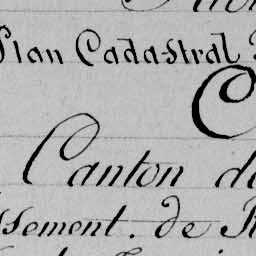 Plan Cadastral
C
Canton d
ssement. de R